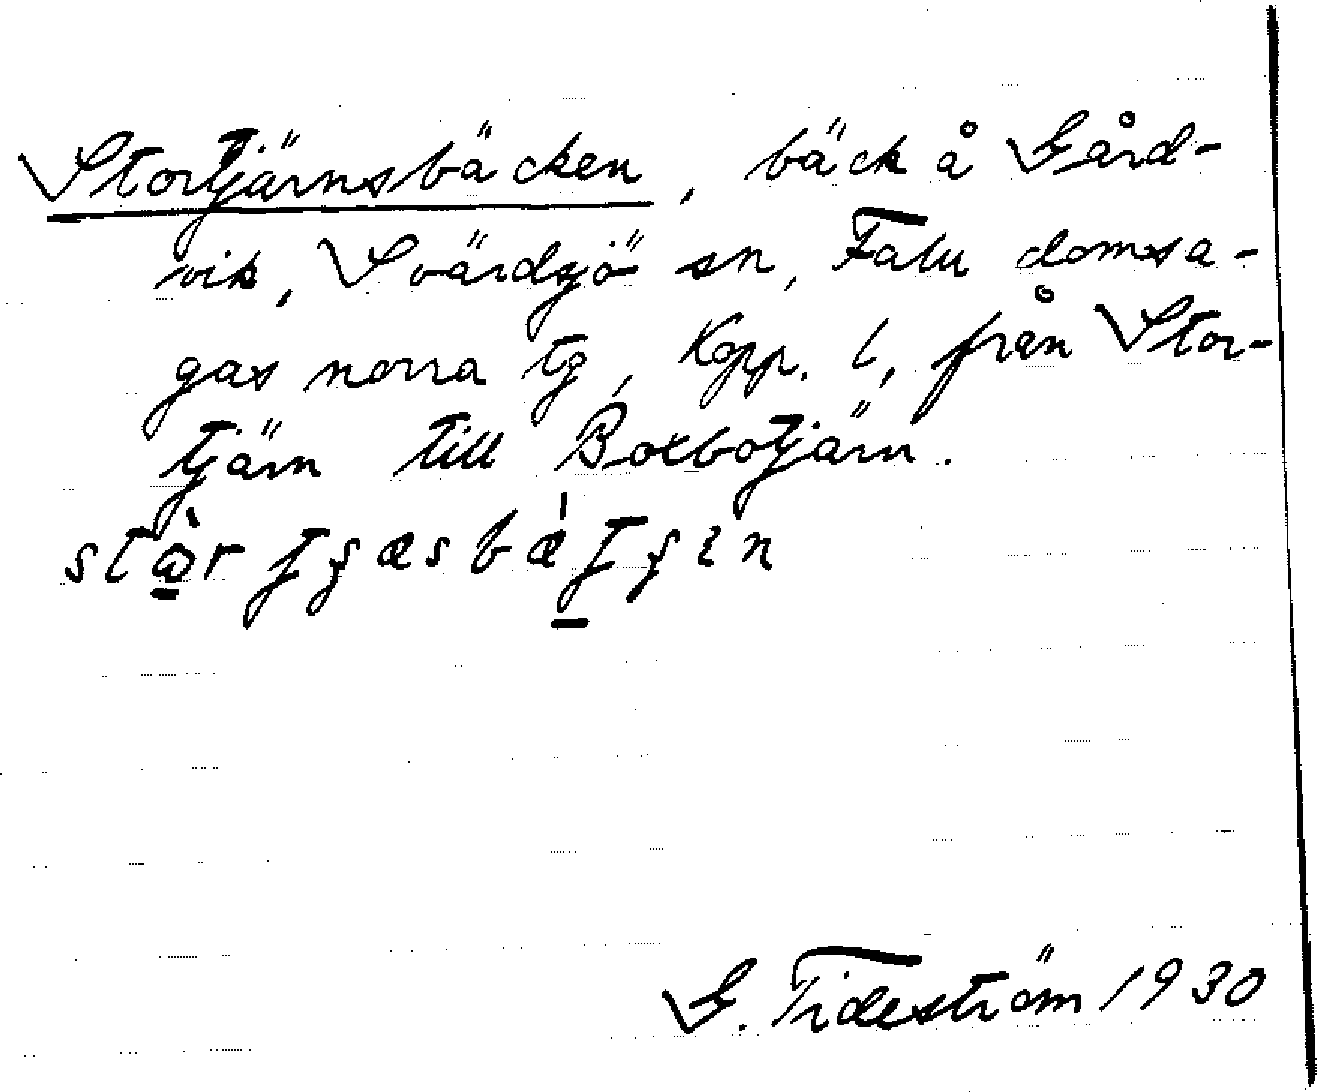 Stortjärnsbäcken, bäck å Gård-
vik, Svärdsjö sn, Falu domsa-
gas norra tg, Kopp. l, från Stor-
tjärn till Boxbotjärn.
G. Tideström 1930